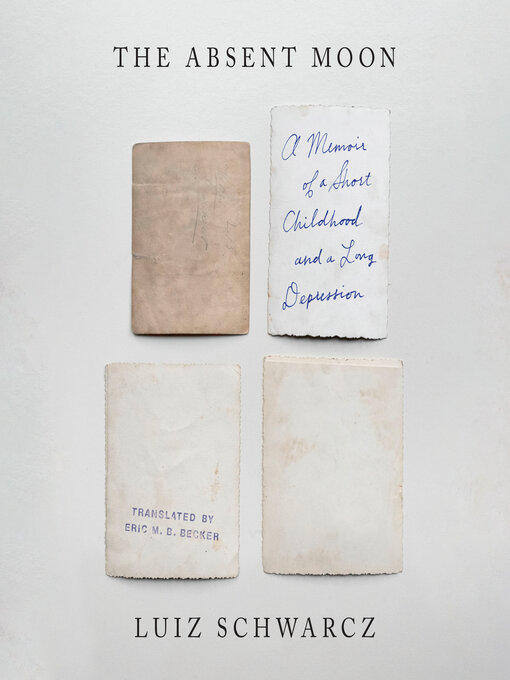 THE ABSENT MOON
A Memoir
of a Short
Childhood
and a Long
Depression
TRANSLATED BY
ERIC M. B. BECKER
LUIZ SCHWARCZ